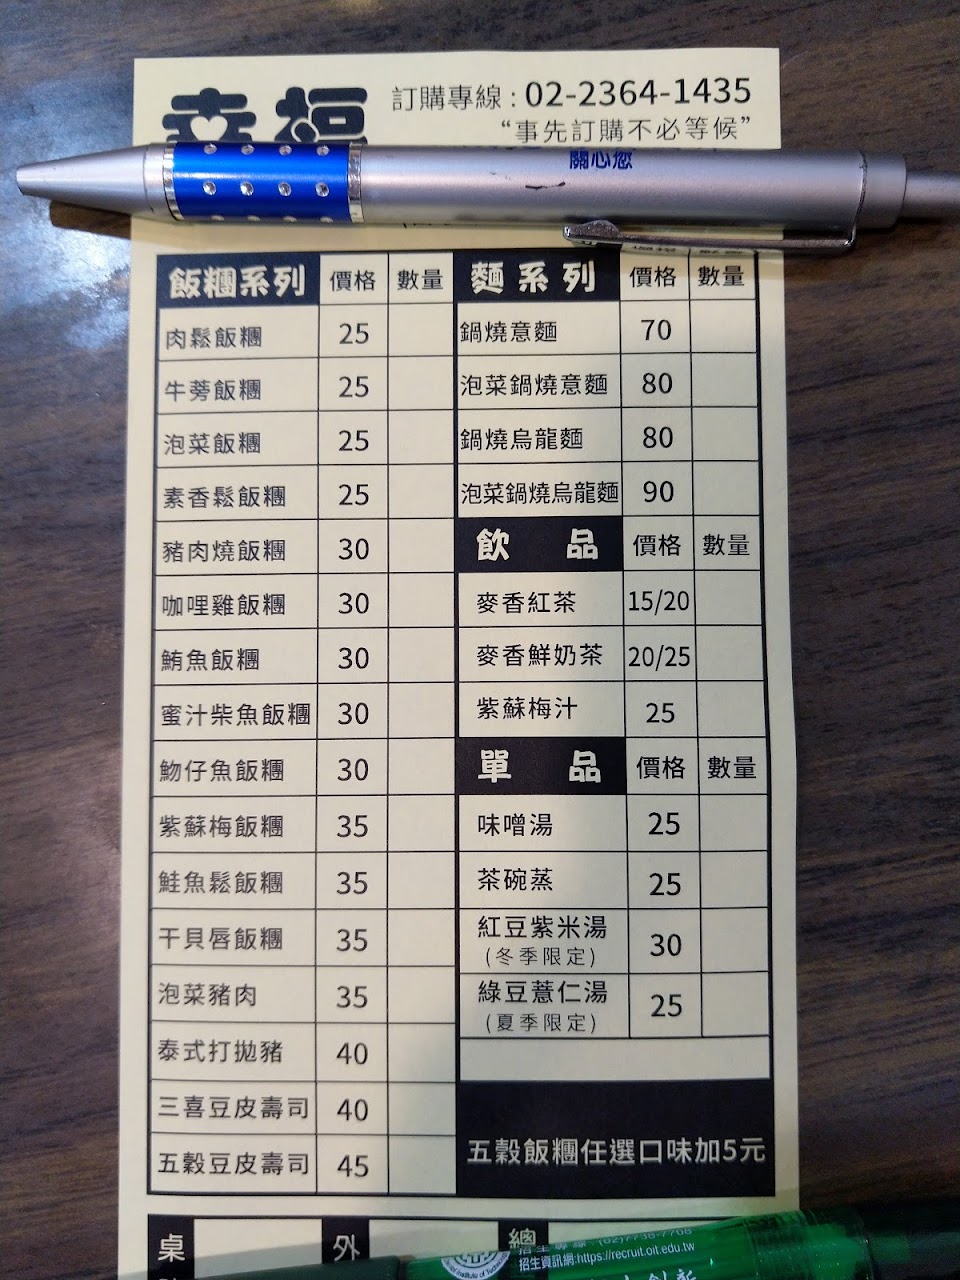 幸福
訂購專線：02-2364-1435
“事先訂購不必等候”
關心您
飯糰系列 價格 數量
肉鬆飯糰 25
牛蒡飯糰 25
泡菜飯糰 25
素香鬆飯糰 25
豬肉燒飯糰 30
咖哩雞飯糰 30
鮪魚飯糰 30
蜜汁柴魚飯糰 30
魩仔魚飯糰 30
紫蘇梅飯糰 35
鮭魚鬆飯糰 35
干貝唇飯糰 35
泡菜豬肉 35
泰式打拋豬 40
三喜豆皮壽司 40
五穀豆皮壽司 45
麵系列 價格 數量
鍋燒意麵 70
泡菜鍋燒意麵 80
鍋燒烏龍麵 80
泡菜鍋燒烏龍麵 90
飲品 價格 數量
麥香紅茶 15/20
麥香鮮奶茶 20/25
紫蘇梅汁 25
單品 價格 數量
味噌湯 25
茶碗蒸 25
紅豆紫米湯 30
(冬季限定)
綠豆薏仁湯 25
(夏季限定)
五穀飯糰任選口味加5元
桌 外 總
招生專線:(02)7738-7708
招生資訊網:https://recruit.oit.edu.tw